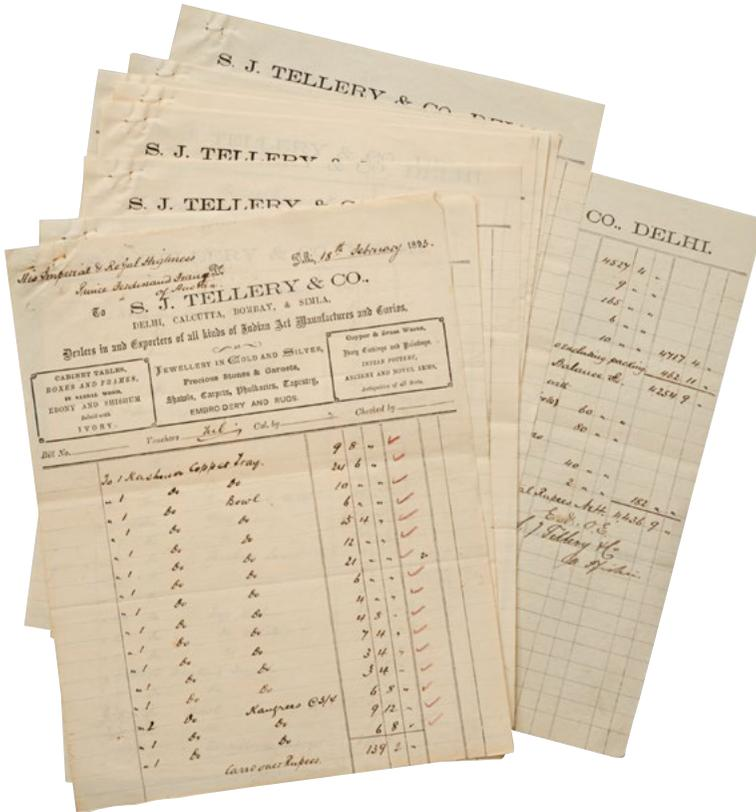 S. J. TELLERY & CO., DEL
S. J. TELLERY &
S. J. TELLERY & C
His Imperial & Royal Highness
Prince Ferdinand
of
Delhi, 18th February 1893.
To S. J. TELLERY & CO.,
DELHI, CALCUTTA, BOMBAY, & SIMLA.
Dealers in and Exporters of all kinds of Indian Art Manufactures and Curios.
CABINET TABLES,
BOXES AND FRAMES,
EBONY AND SHISHUM
Inlaid with
IVORY.
JEWELLERY IN GOLD AND SILVER,
Precious Stones & Garnets,
Shawls, Carpets, Phulkaries, Tapestry,
EMBROIDERY AND RUGS.
Copper & Brass Wares,
Ivory Carvings and Paintings.
INDIAN POTTERY,
ANCIENT AND NOVEL ARMS,
Antiquities of all Sorts.
Bill No. Vouchers Cal. by Checked by
To 1 Kashmir Copper Tray. 9 8 "
" 1 Do Do 24 6 "
" 1 Do Bowl 10 " "
" 1 Do Do 6 " "
" 1 Do Do 25 14 "
" 1 Do Do 12 " "
" 1 Do Do 21 " "
" 1 Do Do 6 " "
" 1 Do Do 4 " "
" 1 Do Do 4 8 "
" 1 Do Do 7 4 "
" 1 Do Do 3 4 "
" 1 Do Do 3 4 "
" 1 Do Do 6 8 "
" 2 Do Kangrees @ 3/4 9 12 "
" 1 Do Do 6 8 "
Carried over Rupees. 139 2 "
CO., DELHI.
4527 4 "
9 " "
165 " "
6 " "
10 " " 4717 4 "
excluding packing 462 11 "
Balance Rs. 4254 9 "
with
60 " "
80 " "
40 " "
2 " " 182 " "
al Rupees Nett. 4436 9 "
E. & O. E.
S. J. Tellery & Co